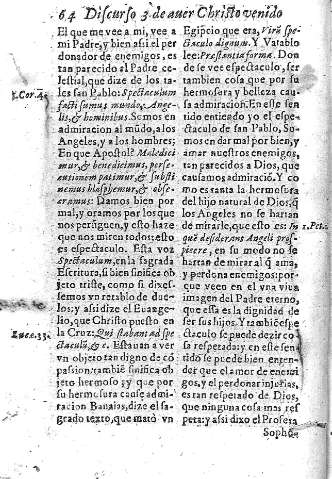 64 Discurso 3. de aver Christo venido
El que me vee a mi, vee a
mi Padre, y bien assi el per
donador de enemigos, es
tan parecido al Padre ce-
lestial, que dize de los ta-
les san Pablo: Spectaculum
facti sumus mundo, Ange-
lis, & hominibus. Somos en
admiracion al mũdo, a los
Angeles, y a los hombres;
En que Apostol? Maledici-
mur, & benedicimus, perse-
cutionem patimur, & susti
nemus blasphemur, & obse-
cramus: Damos bien por
mal, y oramos por los que
nos persiguen, y esto haze
que nos miren todos: esto
es espectaculo. Esta voz
Spectaculum, en la sagrada
Escritura, si bien sinifica ob
jeto triste, como si dixes-
semos vn retablo de due-
los; y assi dize el Euange-
lio, que Christo puesto en
la Cruz: Qui stabant ad spe
ctaculũ, &c. Estauan a ver
vn objeto tan digno de cõ
passion; tambiẽ sinifica ob
jeto hermoso; y que por
su hermosura cause admi-
racion Banaias, dize el sa-
grado texto, que matò vn
1. Cor. 4.
Luce. 23.
Egipcio que era, Virũ spe-
ctaculo dignum. Y Vatablo
lee: Præstantia formæ. Don
de se vee espectaculo, ser
tambien cosa que por su
hermosura y belleza cau-
sa admiracion. En este sen
tido entiendo yo el espe-
ctaculo de san Pablo, So-
mos en dar mal por bien, y
amar nuestros enemigos,
tan parecidos a Dios, que
causamos admiraciõ. Y co
mo es tanta la hermosura
del hijo natural de Dios, q̃
los Angeles no se hartan
de mirarle, que esto es: In
quẽ desiderant Angeli pros-
picere, en su modo no se
hartan de mirar al q̃ ama,
y perdona enemigos: por-
que veen en el vna viua
imagen del Padre eterno,
que essa es la dignidad de
ser sus hijos. Y tambiẽ espe
ctaculo se puede dezir co
sa respetada: y en este sen
tido se puede bien enten-
der que el amor de enemi
gos, y el perdonar injurias,
es tan respetado de Dios,
que ninguna cosa mas res
peta: y assi dixo el Profeta
Sopho-
1. Pet.